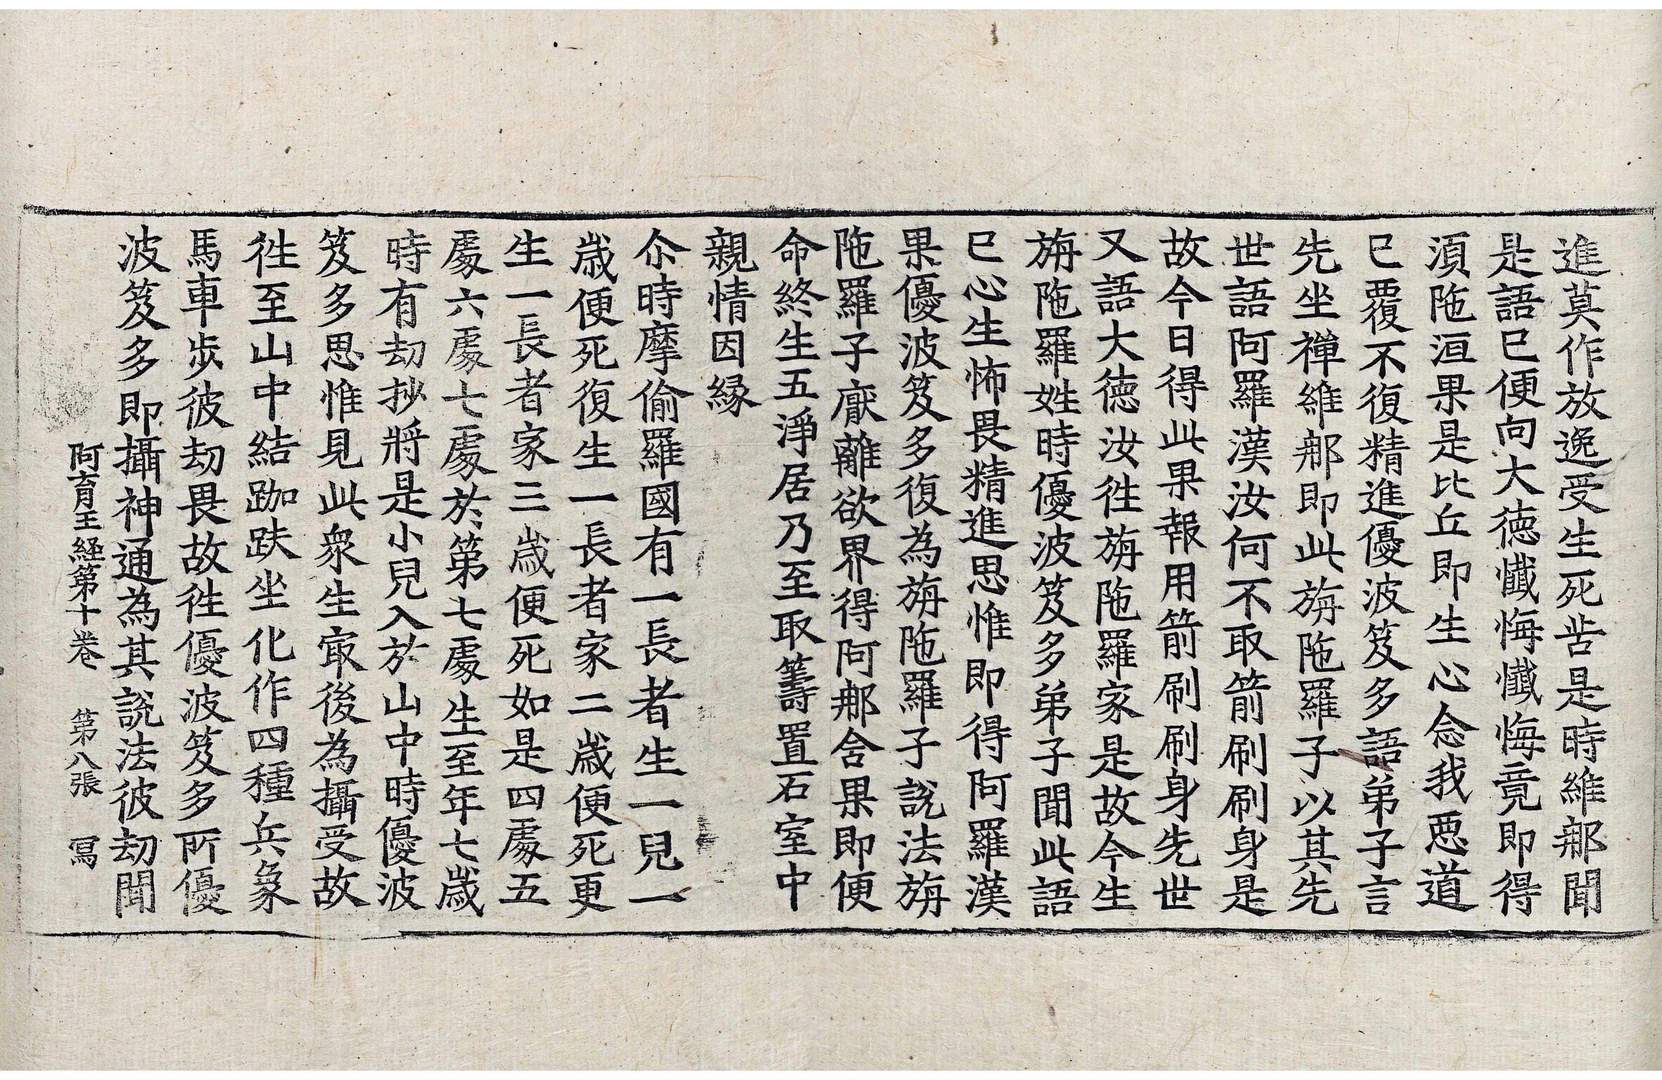 進莫作放逸受生死苦是時維那聞
是語已便向大徳懺悔懺悔竟即得
湏陁洹果是比丘即生心念我惡道
已覆不復精進優波笈多語弟子言
先坐禪維那即此旃陁羅子以其先
世語阿羅漢汝何不取箭刷刷身是
故今日得此果報用箭刷刷身先世
又語大德汝徃旃陁羅家是故今生
旃陁羅姓時優波笈多弟子聞此語
已心生怖畏精進思惟即得阿羅漢
果優波笈多復為旃陁羅子說法旃
陁羅子厭離欲界得阿那含果即便
命終生五淨居乃至取籌置石室中
親情因縁
尒時摩偷羅國有一長者生一兒一
歳便死復生一長者家二歳便死更
生一長者家三歳便死如是四處五
處六處七處於第七處生至年七歳
時有劫抄將是小兒入於山中時優波
笈多思惟見此衆生㝡後為攝受故
徃至山中結跏趺坐化作四種兵象
馬車歩彼劫畏故徃優波笈多所優
波笈多即攝神通為其說法彼劫聞
阿育王経第十卷　第八張　寫